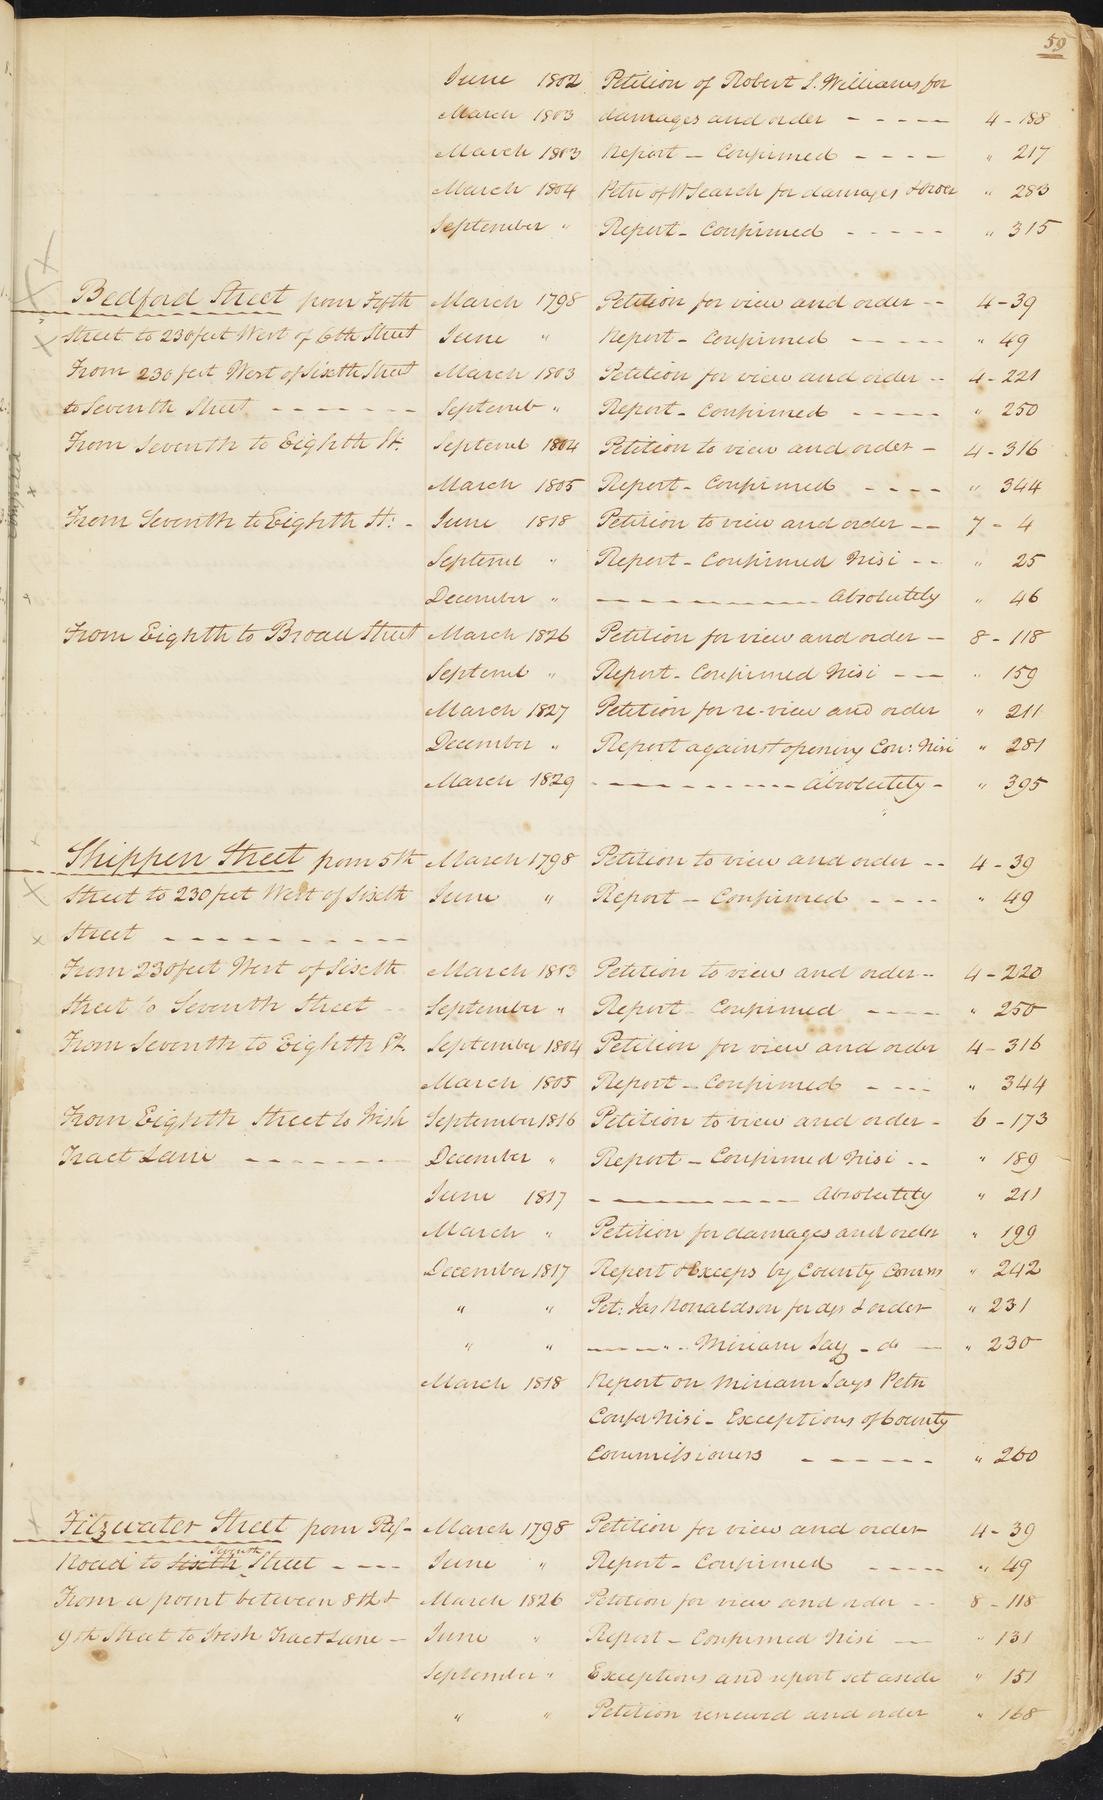 59
June 1802 Petition of Robert S. Williams for
March 1803 damages and order - - - - - 4 - 188
March 1803 Report - Confirmed - - - - " 217
March 1804 Petn of W Search for damages & order " 283
September " Report - Confirmed - - - - - " 315
Bedford Street from Fifth March 1798 Petition for view and order - - 4 - 39
Street to 230 feet West of 6th Street June " Report - Confirmed - - - - - " 49
From 230 feet West of Sixth Street March 1803 Petition for view and order - - 4 - 221
to Seventh Street - - - - - - - Septemb " Report - Confirmed - - - - - " 250
From Seventh to Eighth St: Septeml 1804 Petition to view and order - 4 - 316
March 1805 Report - Confirmed - - - - " 344
From Seventh to Eighth St: - June 1818 Petition to view and order - - 7 - 4
Septeml " Report - Confirmed Nisi - - " 25
December " - - - - - - - - - - - Absolutely " 46
From Eighth to Broad Street March 1826 Petition for view and order - 8 - 118
Septeml " Report - Confirmed Nisi - - - " 159
March 1827 Petition for re-view and order " 211
December " Report against opening Con: Nisi " 281
March 1829 - - - - - - - - - - - Absolutely - " 395
Shippen Street from 5th March 1798 Petition to view and order - - 4 - 39
Street to 230 feet West of Sixth June " Report - Confirmed - - - - " 49
Street - - - - - - - - - -
From 230 feet West of Sixth March 1803 Petition to view and order - - 4 - 220
Street to Seventh Street - - September " Report - Confirmed - - - - " 250
From Seventh to Eighth St. September 1804 Petition for view and order 4 - 316
March 1805 Report - Confirmed - - - - " 344
From Eighth Street to Irish September 1816 Petition to view and order - 6 - 173
Tract Lane - - - - - - - December " Report - Confirmed Nisi - - " 189
June 1817 - - - - - - - - - - - Absolutely " 211
March " Petition for damages and order " 199
December 1817 Report & Exceps by County Comrs " 242
" " Pet: Jas Ronaldson for das & order " 231
" " - - - - " - - Miriam Say - do - " 230
March 1818 Report on Miriam Says Petn
Confd Nisi - Exceptions of County
Commissioners - - - - - - " 260
Fitzwater Street from Pass- March 1798 Petition for view and order 4 - 39
Seventh
Road to Sixth Street - - - - June " Report - Confirmed - - - - - " 49
From a point between 8th & March 1826 Petition for view and order - - 8 - 118
9th Street to Irish Tract Lane - June " Report - Confirmed Nisi - - " 131
September " Exceptions and report set aside " 151
" " Petition renewed and order " 168